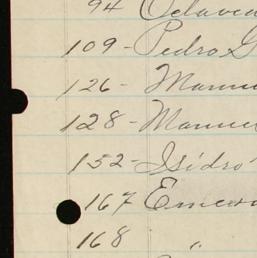 94 Octavia
109 - Pedro G
126 - Manu
128 - Manuel
152 - Isidro
167
168 "